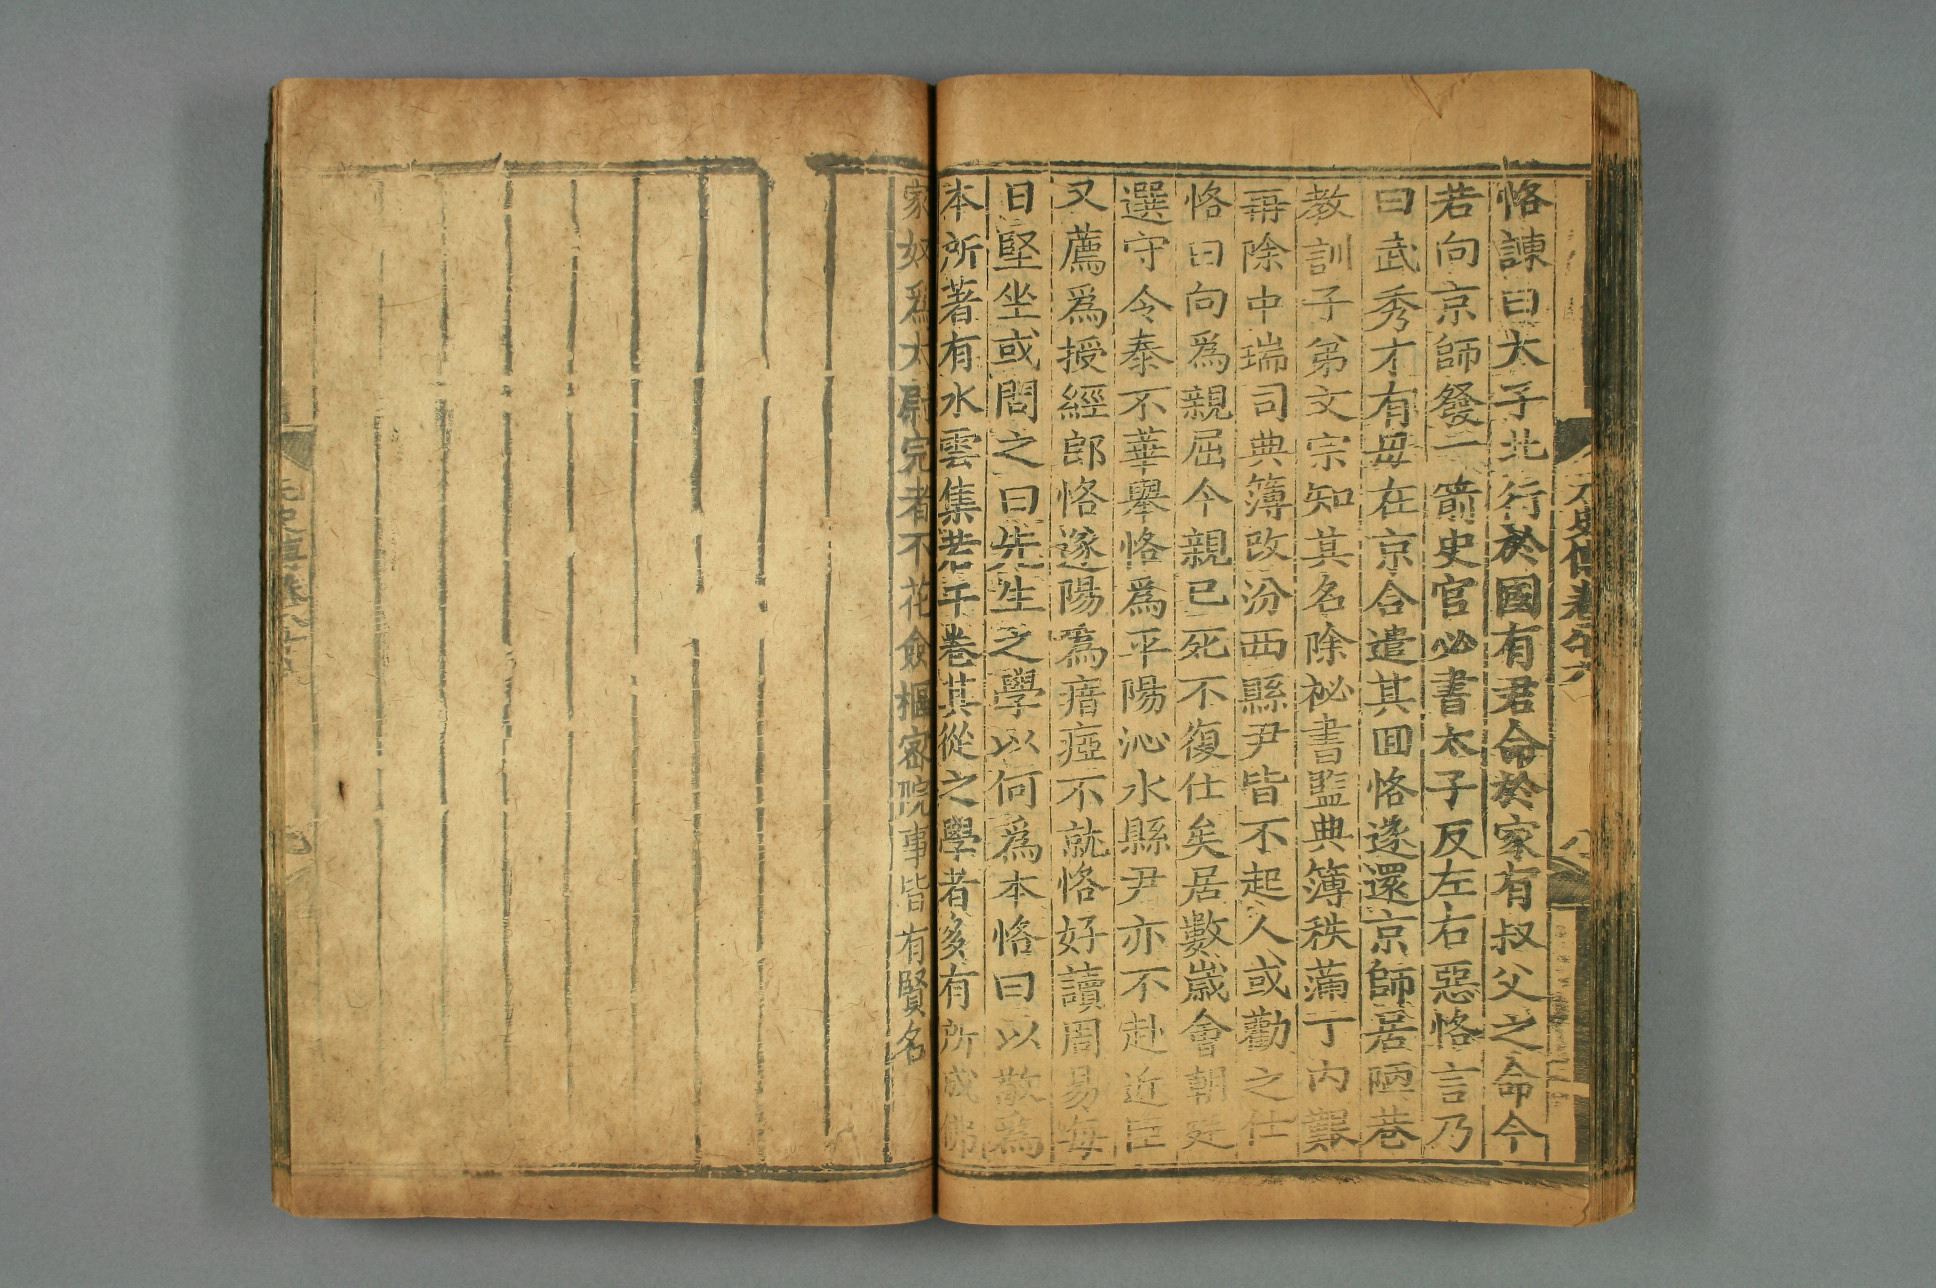 恪諫曰太子北行於國有君命於家有叔父之命今
若向京師發一箭史官必書太子反左右惡恪言乃
曰武秀才有母在京合遣其囬恪遂還京師居陋巷
教訓子弟文宗知其名除祕書監典簿秩滿丁内艱
再除中瑞司典簿改汾西縣尹皆不起人或勸之仕
恪曰向爲親屈今親已死不復仕矣居數歲會朝廷
選守令泰不華舉恪爲平陽沁水縣尹亦不赴近臣
又薦爲授經郎恪遂陽爲瘖瘂不就恪好讀周易每
日堅坐或問之曰先生之學以何爲本恪曰以敬爲
本所著有水雲集若干卷其從之學者多有所成佛
家奴爲太尉完者不花僉樞密院事皆有賢名